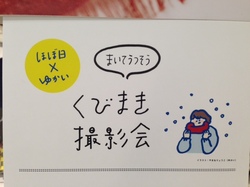 ほぼ日
×
ゆかい
まいてうつそう
くびまき
撮影会